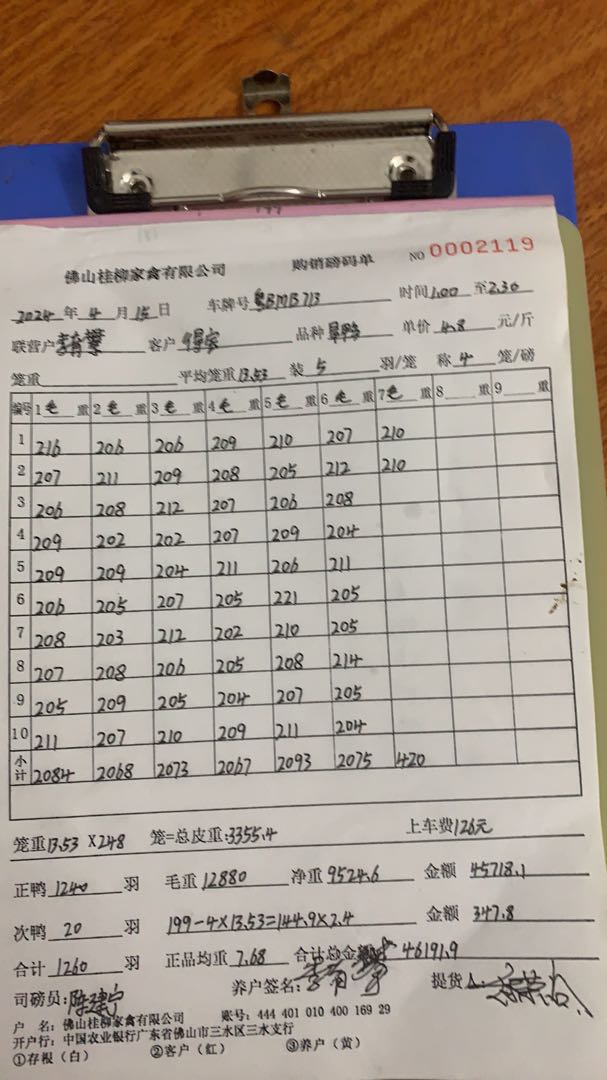 佛山桂柳家禽有限公司 购销磅码单 NO 0002119
2024 年 4 月 15 日 车牌号 粤BMB713 时间 1.00 至 2.30
联营户 客户 品种 单价 4.8 元/斤
笼重 平均笼重 13.53 装 5 羽/笼 称 4 笼/磅
编号 1 毛 重 2 毛 重 3 毛 重 4 毛 重 5 毛 重 6 毛 重 7 毛 重 8 重 9 重
1 216 206 206 209 210 207 210
2 207 211 209 208 205 212 210
3 206 208 212 207 206 208
4 209 202 202 207 209 204
5 209 209 204 211 206 211
6 206 205 207 205 221 205
7 208 203 212 202 210 205
8 207 208 206 205 208 214
9 205 209 205 204 207 205
10 211 207 210 209 211 204
小计 2084 2068 2073 2067 2093 2075 420
笼重 13.53 X 248 笼=总皮重:3355.4 上车费 126元
正鸭 1240 羽 毛重 12880 净重 9524.6 金额 45718.1
次鸭 20 羽 199-4X13.53=144.9X2.4 金额 347.8
合计 1260 羽 正品均重 7.68 合计总金额 46191.9
司磅员: 陈建宁 养户签名: 提货人:
户 名: 佛山桂柳家禽有限公司 账号: 444 401 010 400 169 29
开户行: 中国农业银行广东省佛山市三水区三水支行
①存根（白） ②客户（红） ③养户（黄）